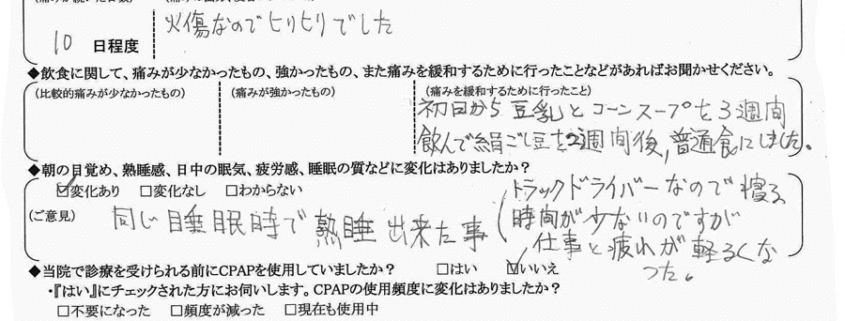 火傷なのでヒリヒリでした
10 日程度
◆飲食に関して、痛みが少なかったもの、強かったもの、また痛みを緩和するために行ったことなどがあればお聞かせください。
(比較的痛みが少なかったもの) (痛みが強かったもの) (痛みを緩和するために行ったこと)
初日から豆乳とコーンスープを3週間
飲んで絹ごし豆を2週間後,普通食にしました。
◆朝の目覚め、熟睡感、日中の眠気、疲労感、睡眠の質などに変化はありましたか?
☑変化あり □変化なし □わからない
(ご意見) 同じ睡眠時で熟睡出来た事
(トラックドライバーなので寝る
時間が少ないのですが
仕事と疲れが軽るくな
った。
◆当院で診療を受けられる前にCPAPを使用していましたか? □はい ☑いいえ
・『はい』にチェックされた方にお伺いします。CPAPの使用頻度に変化はありましたか?
□不要になった □頻度が減った □現在も使用中